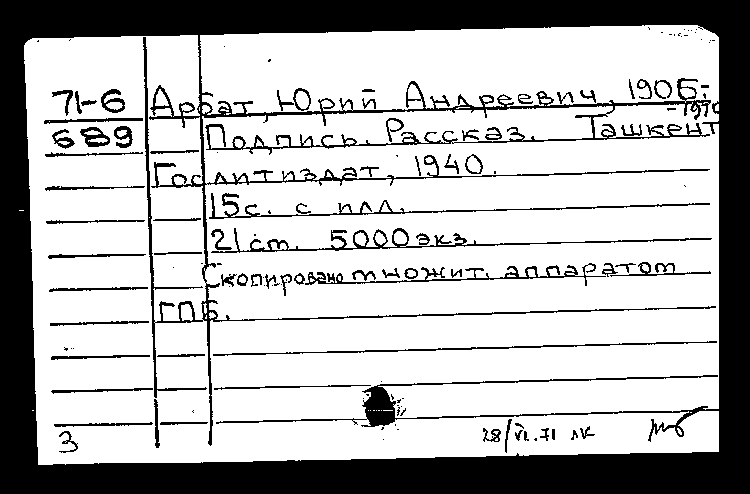 71-6 Арбат, Юрий Андреевич, 1905-
-1970
689 Подпись. Рассказ. Ташкент
Гослитиздат, 1940.
15с. с илл.
21 ст. 5000 экз.
Скопировано множит. аппаратом
ГПБ.
3 28/VI.71 лк